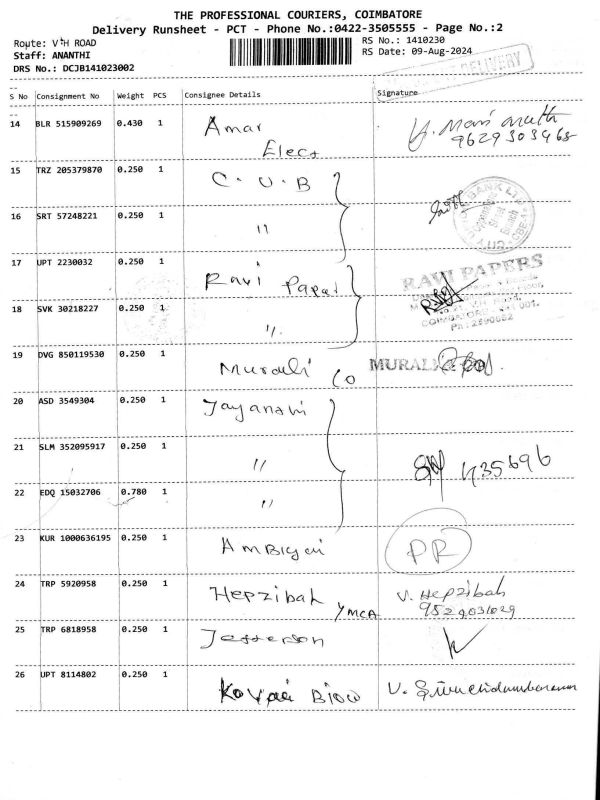 THE PROFESSIONAL COURIERS, COIMBATORE
Delivery Runsheet - PCT - Phone No.:0422-3505555 - Page No.:2
Route: V H ROAD
RS No.: 1410230
Staff: ANANTHI
RS Date: 09-Aug-2024
DRS No.: DCJB141023002
DELIVERY
S No Consignment No Weight PCS Consignee Details Signature
14 BLR 515909269 0.430 1 Amar
Elect
9629303468
15 TRZ 205379870 0.250 1 C. U. B
BANK LTD
CITY
16 SRT 57248221 0.250 1 "
17 UPT 2230032 0.250 1 Ravi Paper
RAVI PAPERS
18 SVK 30218227 0.250 1 "
COIMBATORE
PH: 2390652
19 DVG 850119530 0.250 1 Murali Co MURALI & CO
20 ASD 3549304 0.250 1 Jayanthi
21 SLM 352095917 0.250 1 " 435696
22 EDQ 15032706 0.780 1 "
23 KUR 1000636195 0.250 1 PR
24 TRP 5920958 0.250 1 Hepzibah YMCA V. Hepzibah
25 TRP 6818958 0.250 1 Jefferson
26 UPT 8114802 0.250 1 Kovai